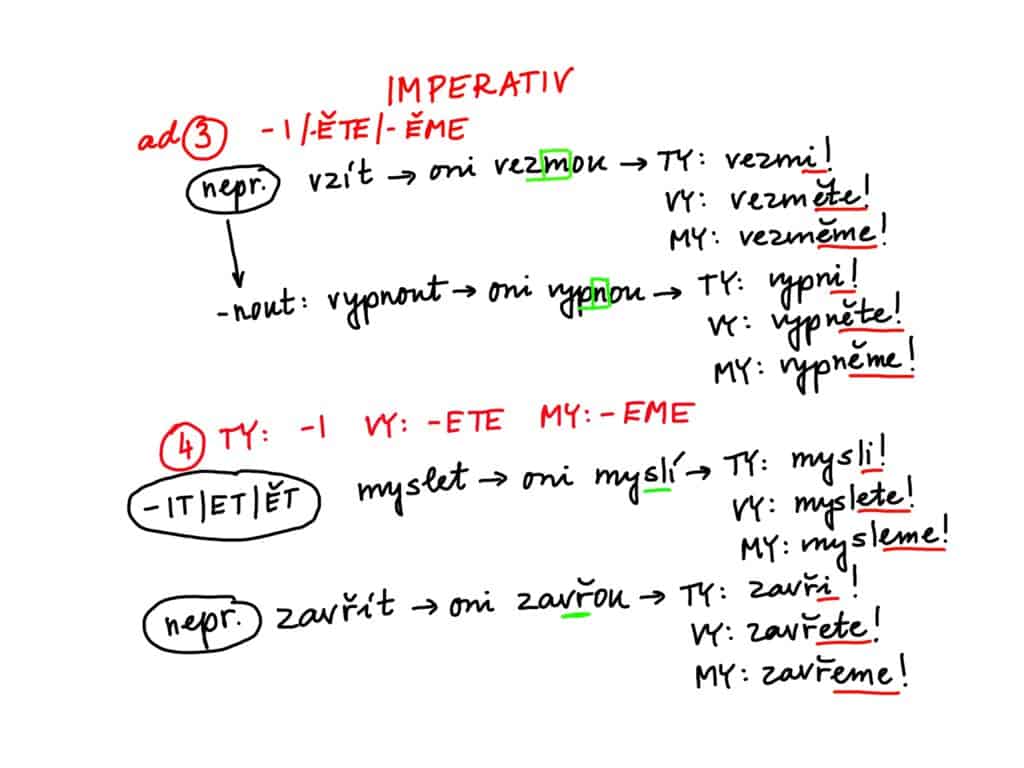 IMPERATIV
ad 3 -I/-ĚTE/-ĚME
nepr. vzít → oni vezmou → TY: vezmi!
VY: vezměte!
MY: vezměme!
-nout: vypnout → oni vypnou → TY: vypni!
VY: vypněte!
MY: vypněme!
4 TY: -I VY: -ETE MY: -EME
-IT|ET|ĚT myslet → oni myslí → TY: mysli!
VY: myslete!
MY: mysleme!
nepr. zavřít → oni zavřou → TY: zavři!
VY: zavřete!
MY: zavřeme!